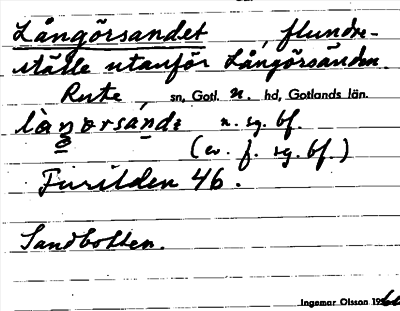 Långörsandet, flundre-
ställe utanför Långörsänden.
Rute, sn, Gotl. n. hd, Gotlands län.
n. sg. bf.
(ev. f. sg. bf.)
Furilden 46.
Sandbotten.
Ingemar Olsson 19